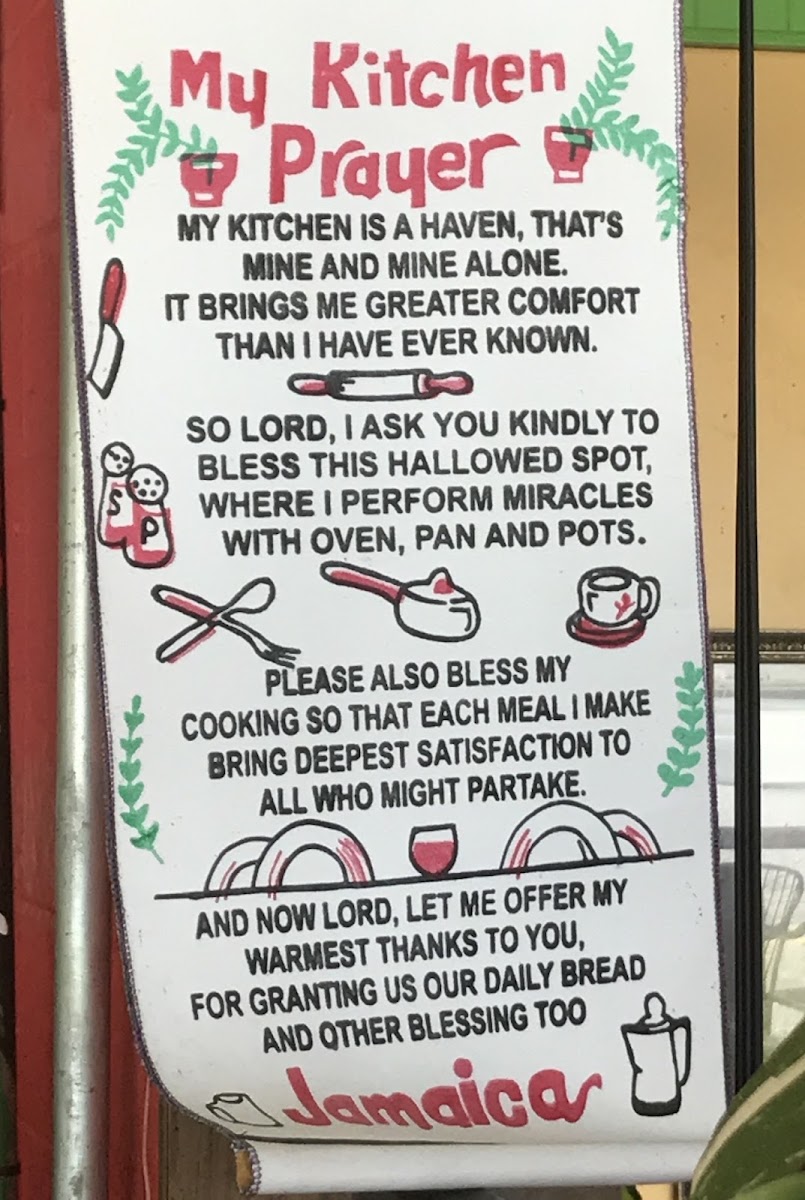 My Kitchen
Prayer
MY KITCHEN IS A HAVEN, THAT'S
MINE AND MINE ALONE.
IT BRINGS ME GREATER COMFORT
THAN I HAVE EVER KNOWN.
SO LORD, I ASK YOU KINDLY TO
BLESS THIS HALLOWED SPOT,
WHERE I PERFORM MIRACLES
WITH OVEN, PAN AND POTS.
S
P
PLEASE ALSO BLESS MY
COOKING SO THAT EACH MEAL I MAKE
BRING DEEPEST SATISFACTION TO
ALL WHO MIGHT PARTAKE.
AND NOW LORD, LET ME OFFER MY
WARMEST THANKS TO YOU,
FOR GRANTING US OUR DAILY BREAD
AND OTHER BLESSING TOO
Jamaica